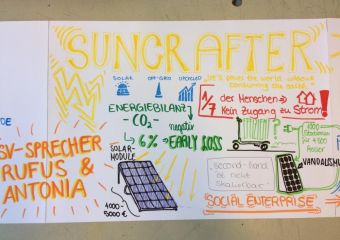 SUNCRAFTER
SOLAR OFF-GRID UPCYCLED
"Let's power the world without
consuming the earth."
ENERGIEBILANZ
-CO₂-
negativ
6% → EARLY LOSS
1/7 der Menschen →
Kein Zugang zu Strom!
SV-SPRECHER
RUFUS &
ANTONIA
SOLAR-
MODULE
1000-
5000 €
second-hand
ist nicht
skalierbar
VANDALISMUS
"SOCIAL ENTERPRISE"